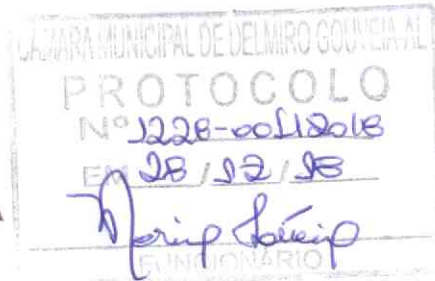 CÂMARA MUNICIPAL DE DELMIRO GOUVEIA-AL
PROTOCOLO
Nº 1228-001/2018
EM 28 / 12 / 18
FUNCIONÁRIO